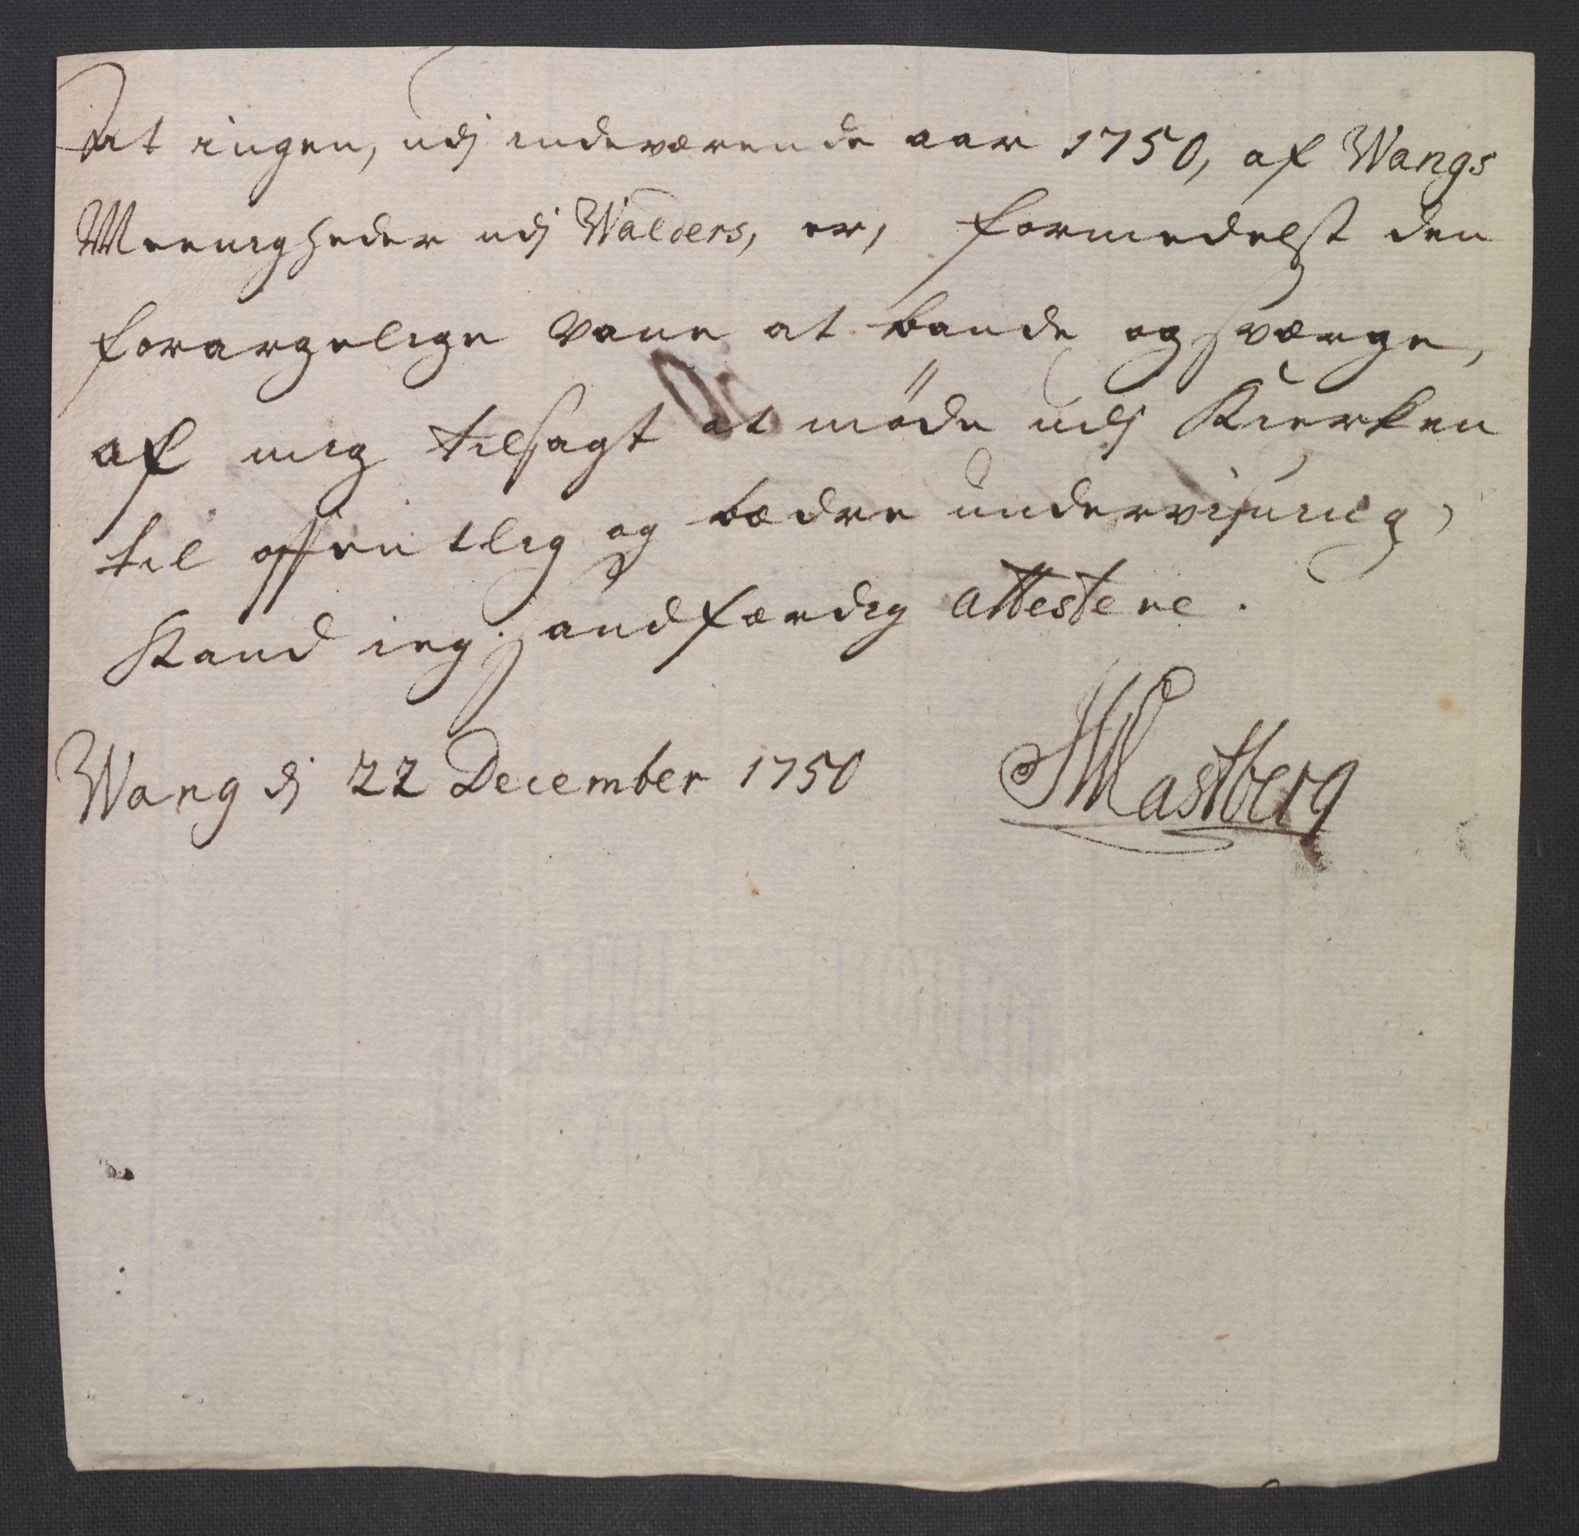 At ingen, udj indeværende aar 1750, af Wangs
Meenigheder udj Walders, er, formedelst den
forargelige vane at bande og sværge,
af mig tilsagt at møde udj Kierken
til offentlig og bædre underviisning,
Kand ieg sandfærdig attestere.
Wang dj 22 December 1750
HKastberg